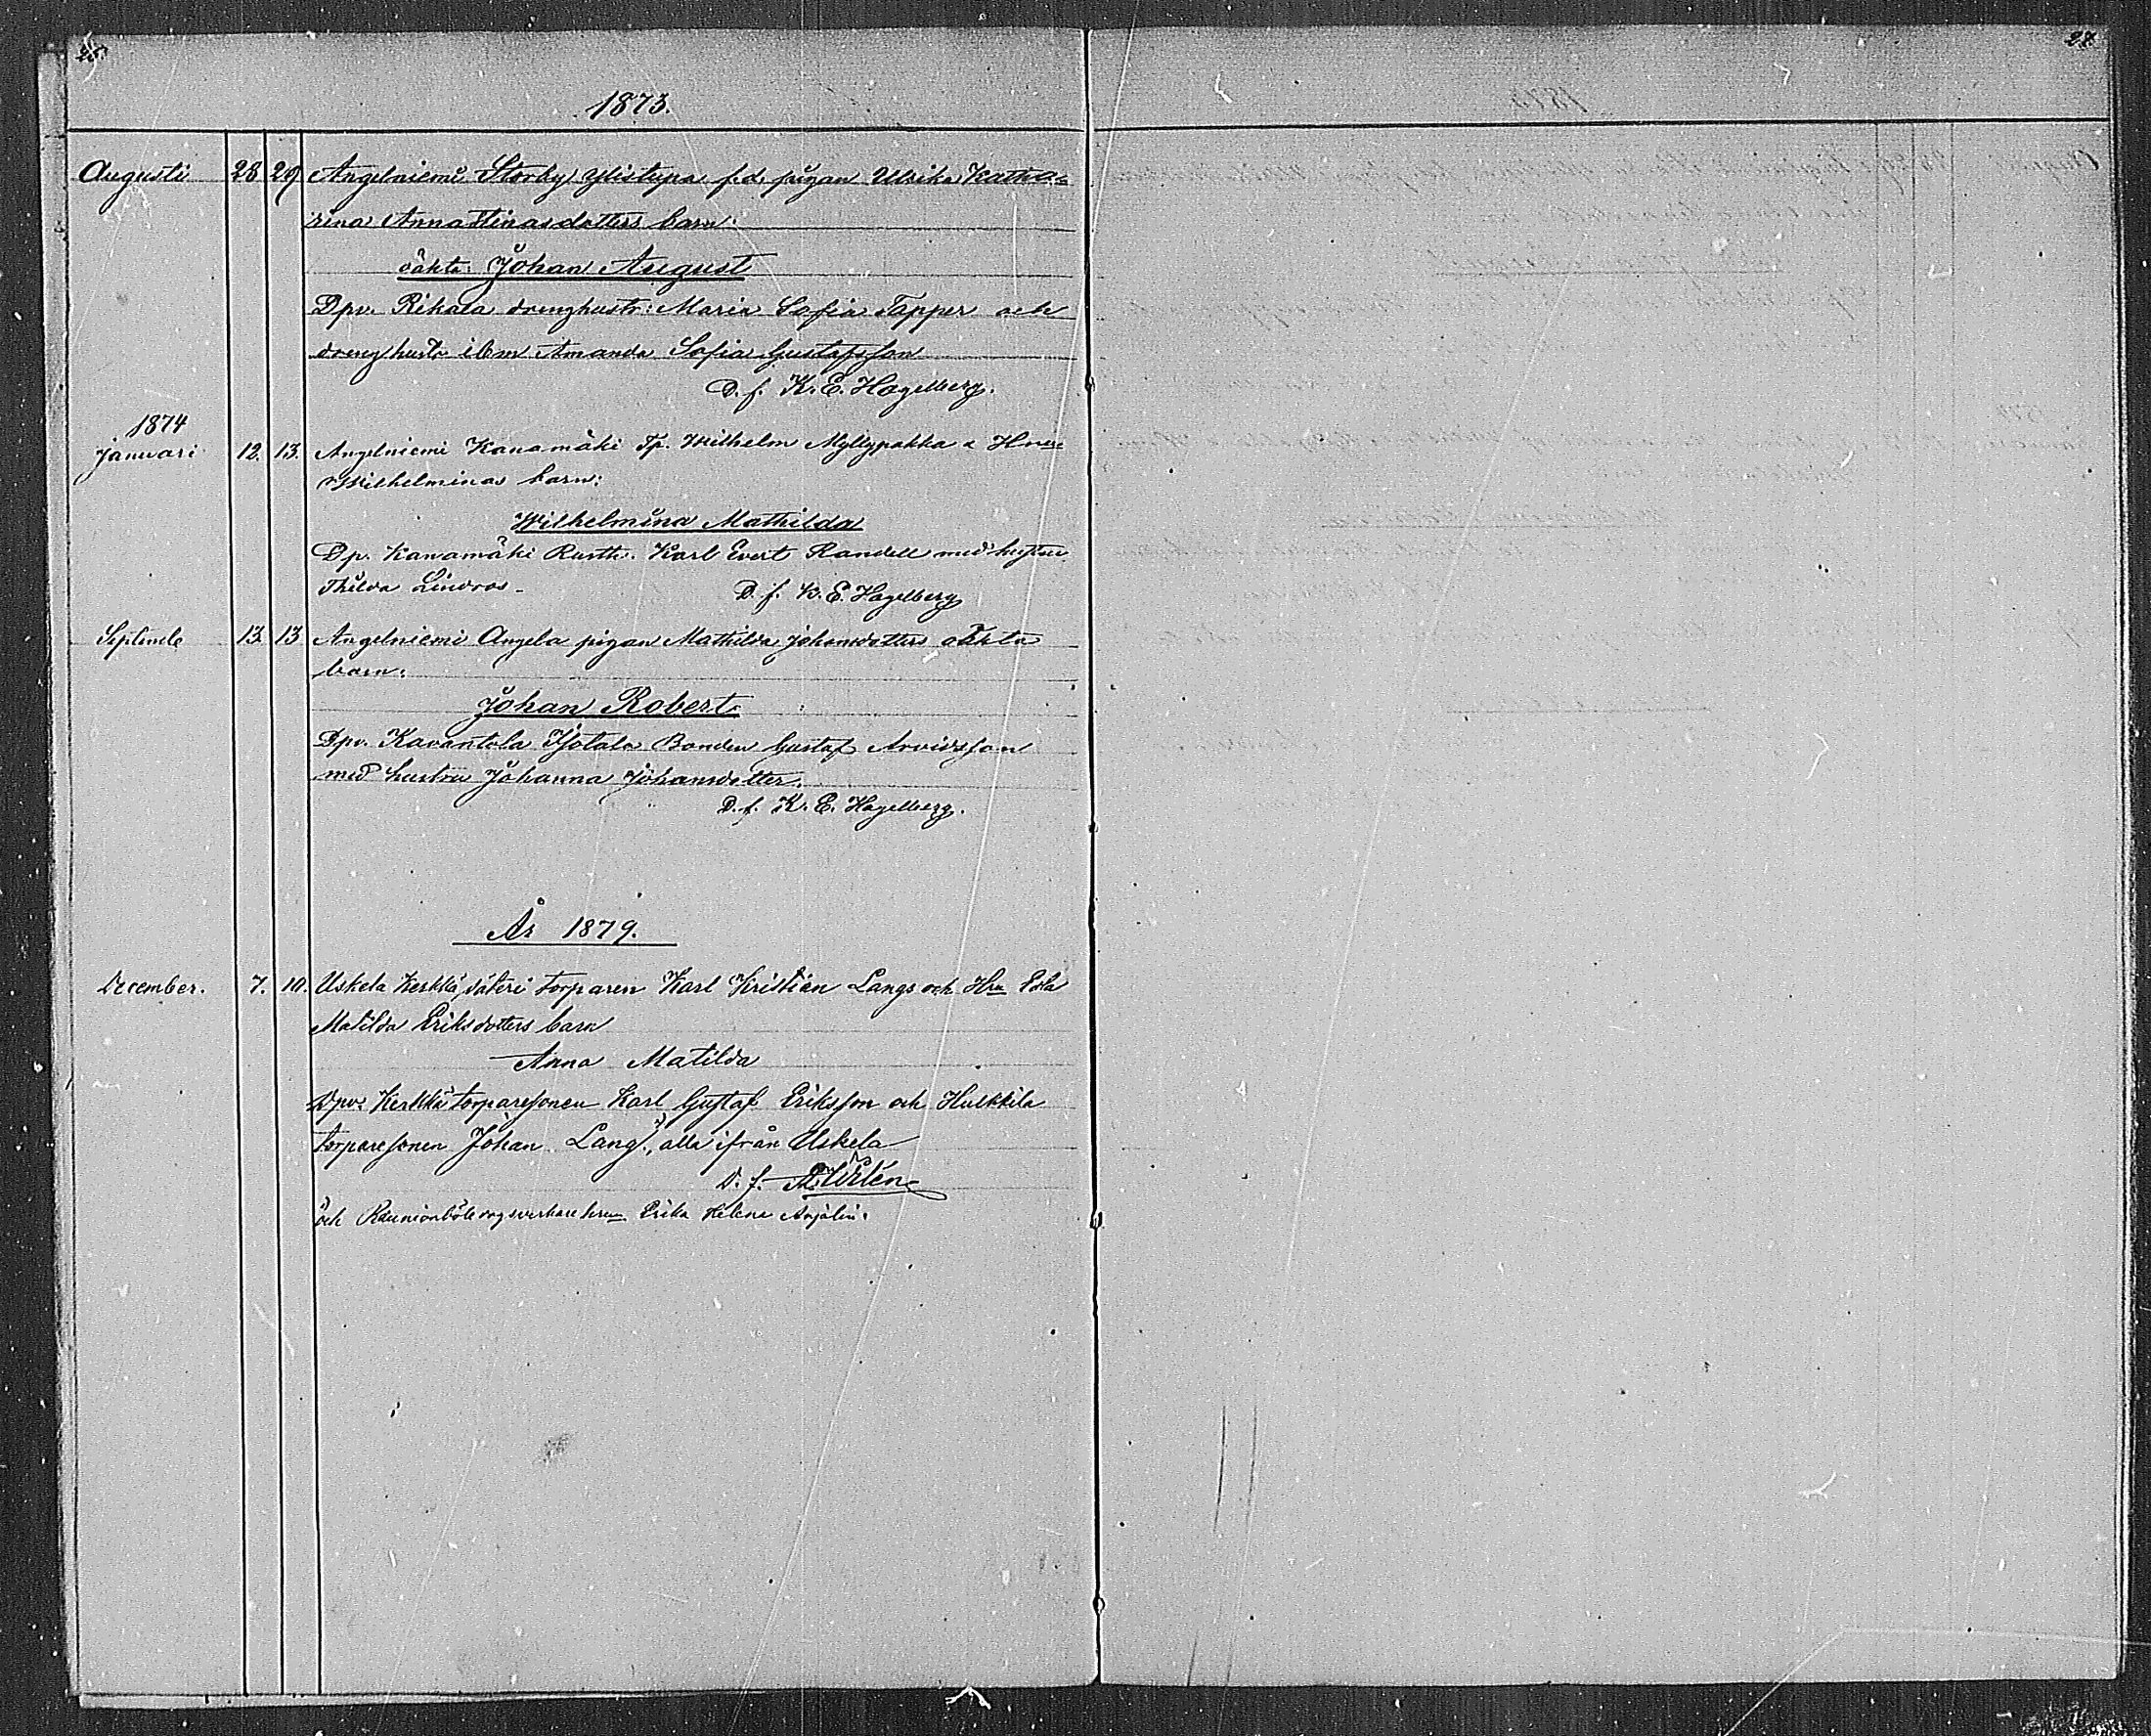 26.
27.
1873.
Augusti 28 29 Angelniemi Storby Ylistupa f.d. pigan Ulrika Katha=
rina Anna Stinasdotters barn:
oäkta: Johan August
Dpv. Rikala drenghustr: Maria Sofia Tapper och
drenghustr ibm Amanda Sofia Gustafsson
D. f. K. E. Hagelberg.
1874
Januari 12. 13. Angelniemi Kanamäki Tp. Wilhelm Myllypakka &
Wilhelminas barn:
Wilhelmina Mathilda
Dp. Kanamäki Rusth. Karl Evert Randell med hustru
Thilda Lindros D. f. K. E. Hagelberg
13. 13 Angelniemi Angela pigan Mathilda Johansdotters oäkta
barn:
Johan Robert
Dpv. Kavantola Bonden Gustaf Arvidsson
med hustru Johanna Johansdotter.
D. f. K. E. Hagelberg.
År 1879.
December. 7. 10. Uskela säteri torparen Karl Kristian Langs och Hru
Matilda Eriksdotters barn
Anna Matilda
Dpv: torparesonen Karl Gustaf Eriksson och Hulkkila
torparesonen Johan Lang, alla ifrån Uskela
D. f.
och Erika Helena